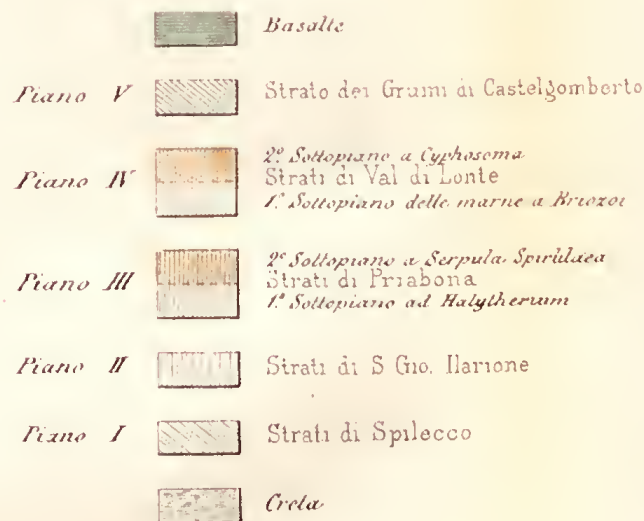 Basalte
Piano V Strato dei Grumi di Castelgomberto
2º. Sottopiano a Cyphosoma
Piano IV Strati di Val di Lonte
1º. Sottopiano delle marne a Briozoi
2º Sottopiano a Serpula Spirulaea
Piano III Strati di Priabona
1º Sottopiano ad Halytherium
Piano II Strati di S Gio. Ilarione
Piano I Strati di Spilecco
Creta